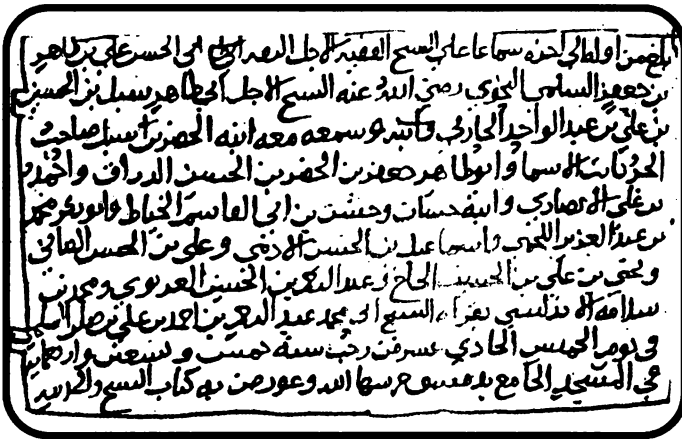 بلغ من اوله الى اخره سماعا على الشيخ الفقيه الاجل ابى الحسن على بن طاهر
بن جعفر السلمى النحوى رضى الله عنه الشيخ الاجل ابى طاهر سبل بن الحسين
بن على بن عبد الواحد الحارثى وسمعه معه ابنه الخضر بن سبل صاحب
الاسما وابو طاهر جعفر بن الخضر بن الحسن واحمد
بن على الانصارى وابنه حسان بن ابى القاسم الخياط وابو بكر محمد
بن عبد العزيز اللخمى واسماعيل بن الحسن وعلى بن الحسن
ويحيى بن على بن الحسين الحاج وعبد بن الحسين ومحمد بن
سلامة الاندلسى بقراءة الشيخ ابى محمد عبد بن احمد بن على بن صابر السلمى
فى يوم الخميس الحادى عشر من رجب سنة خمس وتسعين واربعمائة
فى المسجد الجامع بدمشق حرسها الله وعورض به كتاب الشيخ